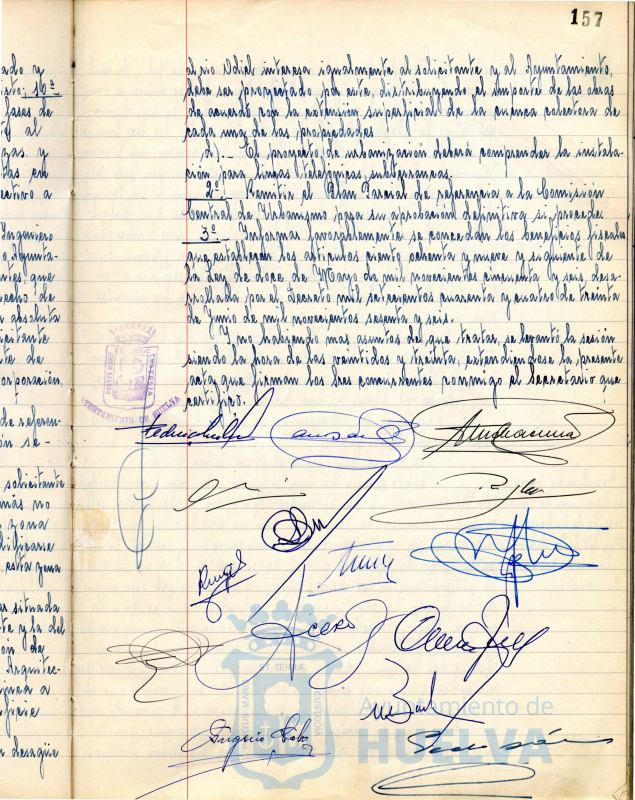 157
ado y
isto; 16ª
fases de
al
zas y
tas en
ectivo a
Ingeniero
o Ayunta-
ntes, que
echo de
a absoluta
citante
te de
orporación,
de referen-
ón se-
solicitante
más no
zona
dificarse
esta zona
situada
te y la del
ón de
Arquitec-
a
ficie
desagüe
al rio Odiel interesa igualmente al solicitante y al Ayuntamiento,
debe ser proyectado por este, distribuyendo el importe de las obras
de acuerdo con la extensión superficial de la cuenca colectora de
cada una de las propiedades
d).- El proyecto de urbanización deberá comprender la instala-
ción para lineas telefonicas subterraneas.
2º.- Remitir el Plan Parcial de referencia a la Comisión
Central de Urbanismo para su aprobación definitiva si procede.
3º.- Informar favorablemente se concedan los beneficios fiscales
que establecen los articulos ciento ochenta y nueve y siguiente de
la Ley de doce de Mayo de mil novecientos cincuenta y seis, desa-
rrollada por el Decreto mil setecientos cuarenta y cuatro de treinta
de Junio de mil novecientos sesenta y seis.
Y no habiendo mas asuntos del que tratar, se levantó la sesión
siendo la hora de las veintidos y treinta, extendiendose la presente
acta, que firman los Sres concurrentes conmigo el Secretario que
certifico.
AYUNTAMIENTO DE HUELVA
PORTUS MARIS
ET TERRAE
CUSTODIA
Ayuntamiento de
HUELVA